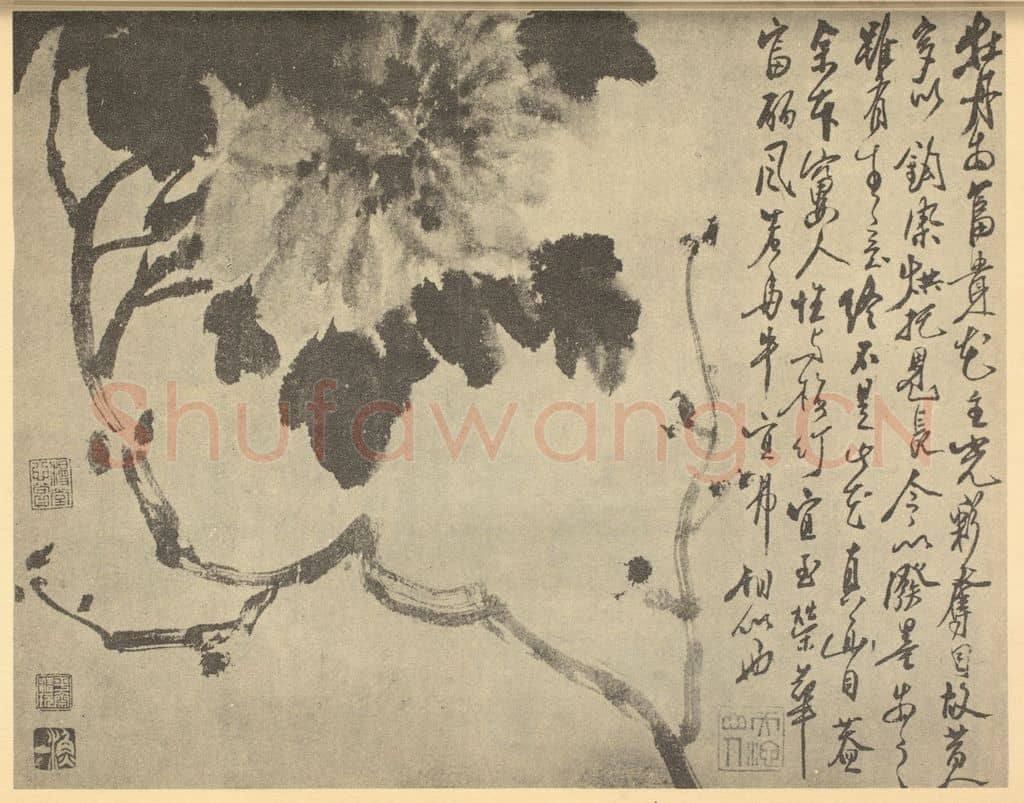 牡丹為富貴花主光彩奪目故昔人
多以鈎染烘托見長今以潑墨為之
雖有生意終不是此花真面目蓋
余本窶人性與梅竹宜至榮華
富麗風若馬牛宜弗相似也
天池山人
Shufawang.CN